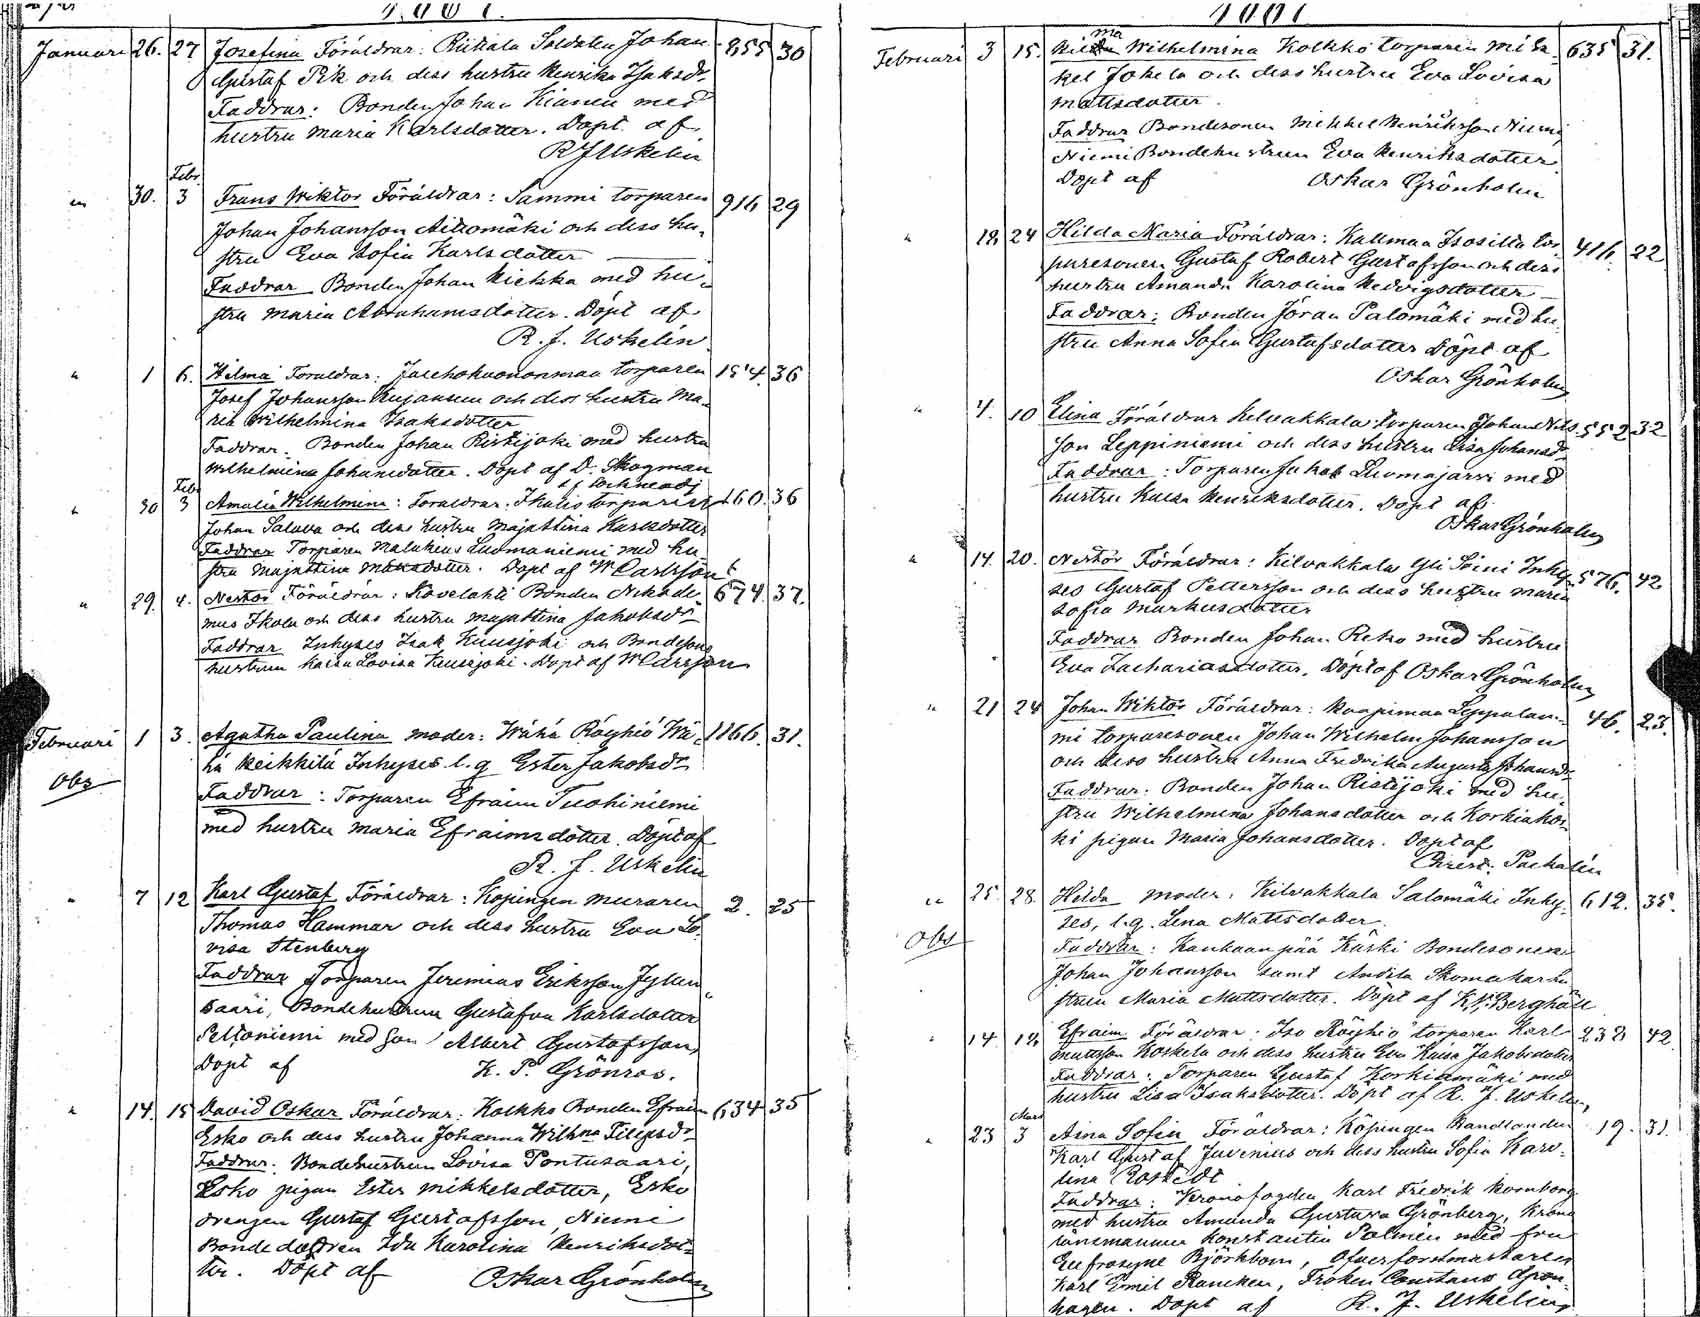 Januari 26. 27 Josefina Föräldrar: Riikala Soldaten Johan 855 30
Gustaf Pik och dess hustru Henrika Isaksdr
Faddrar: Bonden Johan Kianen med
hustru Maria Karlsdotter. Döpt af
R J Uskelin
Febr
" 30. 3 Frans Wiktor Föräldrar: Sammi torparen 916 29
Johan Johansson Aitomäki och dess hu-
stru Eva Sofia Karlsdotter
Faddrar Bonden Johan Kiekka med hu-
stru Maria Abrahamsdotter. Döpt af
R. J. Uskelin
" 1 6. Hilma Föräldrar: torparen 154. 36
Josef Johansson Kujansuu och dess hustru Ma-
ria Wilhelmina Isaksdotter
Faddrar. Bonden Johan Ristijoki med hustru
Wilhelmina Johansdotter. Döpt af D. Skogman
Febr
" 30 3 Amalia Wilhelmina: Föräldrar: Ikalis torparen 160. 36
Johan Salova och dess hustru Majastina Karlsdotter
Faddrar Torparen Malakias Luomaniemi med hu-
stru Majastina Döpt af W Carlsson
" 29. 4. Nestor Föräldrar: Kovelahti Bonden Nikode- 674. 37.
mus Ikola och dess hustru Majastina Jakobsdr
Faddrar Inhyses Isak Kuusjoki och Bondesons
hustrun Kaisa Lovisa Kuusjoki. Döpt af W Carlsson
Februari 1 3. Agatha Paulina moder: Wähä Röyhiö Wä- 1166. 31.
Obs hä Heikkilä Inhyses l. q Ester Jakobsdr
Faddrar: Torparen Efraim Tuohiniemi
med hustru Maria Efraimsdotter. Döpt af
R. J. Uskelin
" 7 12 Karl Gustaf Föräldrar: Köpingen muraren 2. 25
Thomas Hammar och dess hustru Eva Lo-
visa Stenberg
Faddrar Torparen Jeremias Eriksson Jyllin-
saari, Bondehustrun Gustafva Karlsdotter
Peltoniemi med son Albert Gustafsson,
Döpt af K. P. Grönros.
" 14. 15 David Oskar Föräldrar: Kolkko Bonden Efraim 634 35
Esko och dess hustru Johanna Wilhma Filipsdr
Faddrar. Bondehustrun Lovisa Pontusaari,
Esko pigan Ester Mikkelsdotter, Esko
drengen Gustaf Gustafsson, Niemi
Bonde dottren Ida Karolina Henriksdot-
ter. Döpt af Oskar Grönholm
Februari 3 15. Wilhelmina Kolkko torparen Mik- 635 31.
kel Jokela och dess hustru Eva Lovisa
Mattsdotter.
Faddrar Bondesonen Mikkel Henriksson Niemi,
Niemi Bondehustrun Eva Henriksdotter
Döpt af Oskar Grönholm
" 18 24 Hilda Maria Föräldrar: Kallmaa Isosilta tor- 416. 22
paresonen Gustaf Robert Gustafsson och dess
hustru Amanda Karolina Hedvigsdotter
Faddrar: Bonden Jöran Palomäki med hu-
stru Anna Sofia Gustafsdotter Döpt af
Oskar Grönholm
" 4. 10 Elina Föräldrar Kilvakkala torparen Johan Nils- 552 32
son Leppiniemi och dess hustru Lisa Johansdr
Faddrar: Torparen Jakob Luomajärvi med
hustru Kaisa Henriksdotter. Döpt af
Oskar Grönholm
" 14. 20. Nestor Föräldrar: Kilvakkala Yli Soini Inhy- 576. 42
ses Gustaf Pettersson och dess hustru Maria
Sofia Markusdotter
Faddrar Bonden Johan Reko med hustru
Eva Zachariasdotter. Döpt af Oskar Grönholm
" 21 24 Johan Wiktor Föräldrar: Leppälam- 46. 23.
mi torparesonen Johan Wilhelm Johansson
och dess hustru Anna Fredrika Augusta Johansdr
Faddrar: Bonden Johan Ristijoki med hu-
stru Wilhelmina Johansdotter och Korkiakos-
ki pigan Maria Johansdotter. Döpt af
Palmén
" 25. 28. Hilda moder. Kilvakkala Salomäki Inhy- 612. 35.
Obs ses, l. q. Lena Mattsdotter
Faddrar: Kankaanpää Käski Bondesonen
Johan Johansson samt Skomakarhu-
strun Maria Mattsdotter. Döpt af K. N. Berghäll
" 14 18 Efraim Föräldrar: Iso Röyhiö torparen Karl 238 42
Mattsson Koskela och dess hustru Eva Kaisa Jakobsdotter
Faddrar: Torparen Gustaf Korkiamäki med
hustru Lisa Isaksdotter. Döpt af R. J. Uskelin,
Mars
" 23 3 Aina Sofia Föräldrar: Köpingen Handlanden 19. 31.
Karl Gustaf Juvenius och dess hustru Sofia Karo-
lina Rostedt
Faddrar: Kronofogden Karl Fredrik Kornborg
med hustru Amanda Gustava Grönberg, Krono
länsmannen Konstantin Palmén med fru
Eufrosyne Björkbom, Öfverforstmästaren
Karl Emil Rancken, Fröken Constans Grön-
hagen. Döpt af R. J. Uskelin